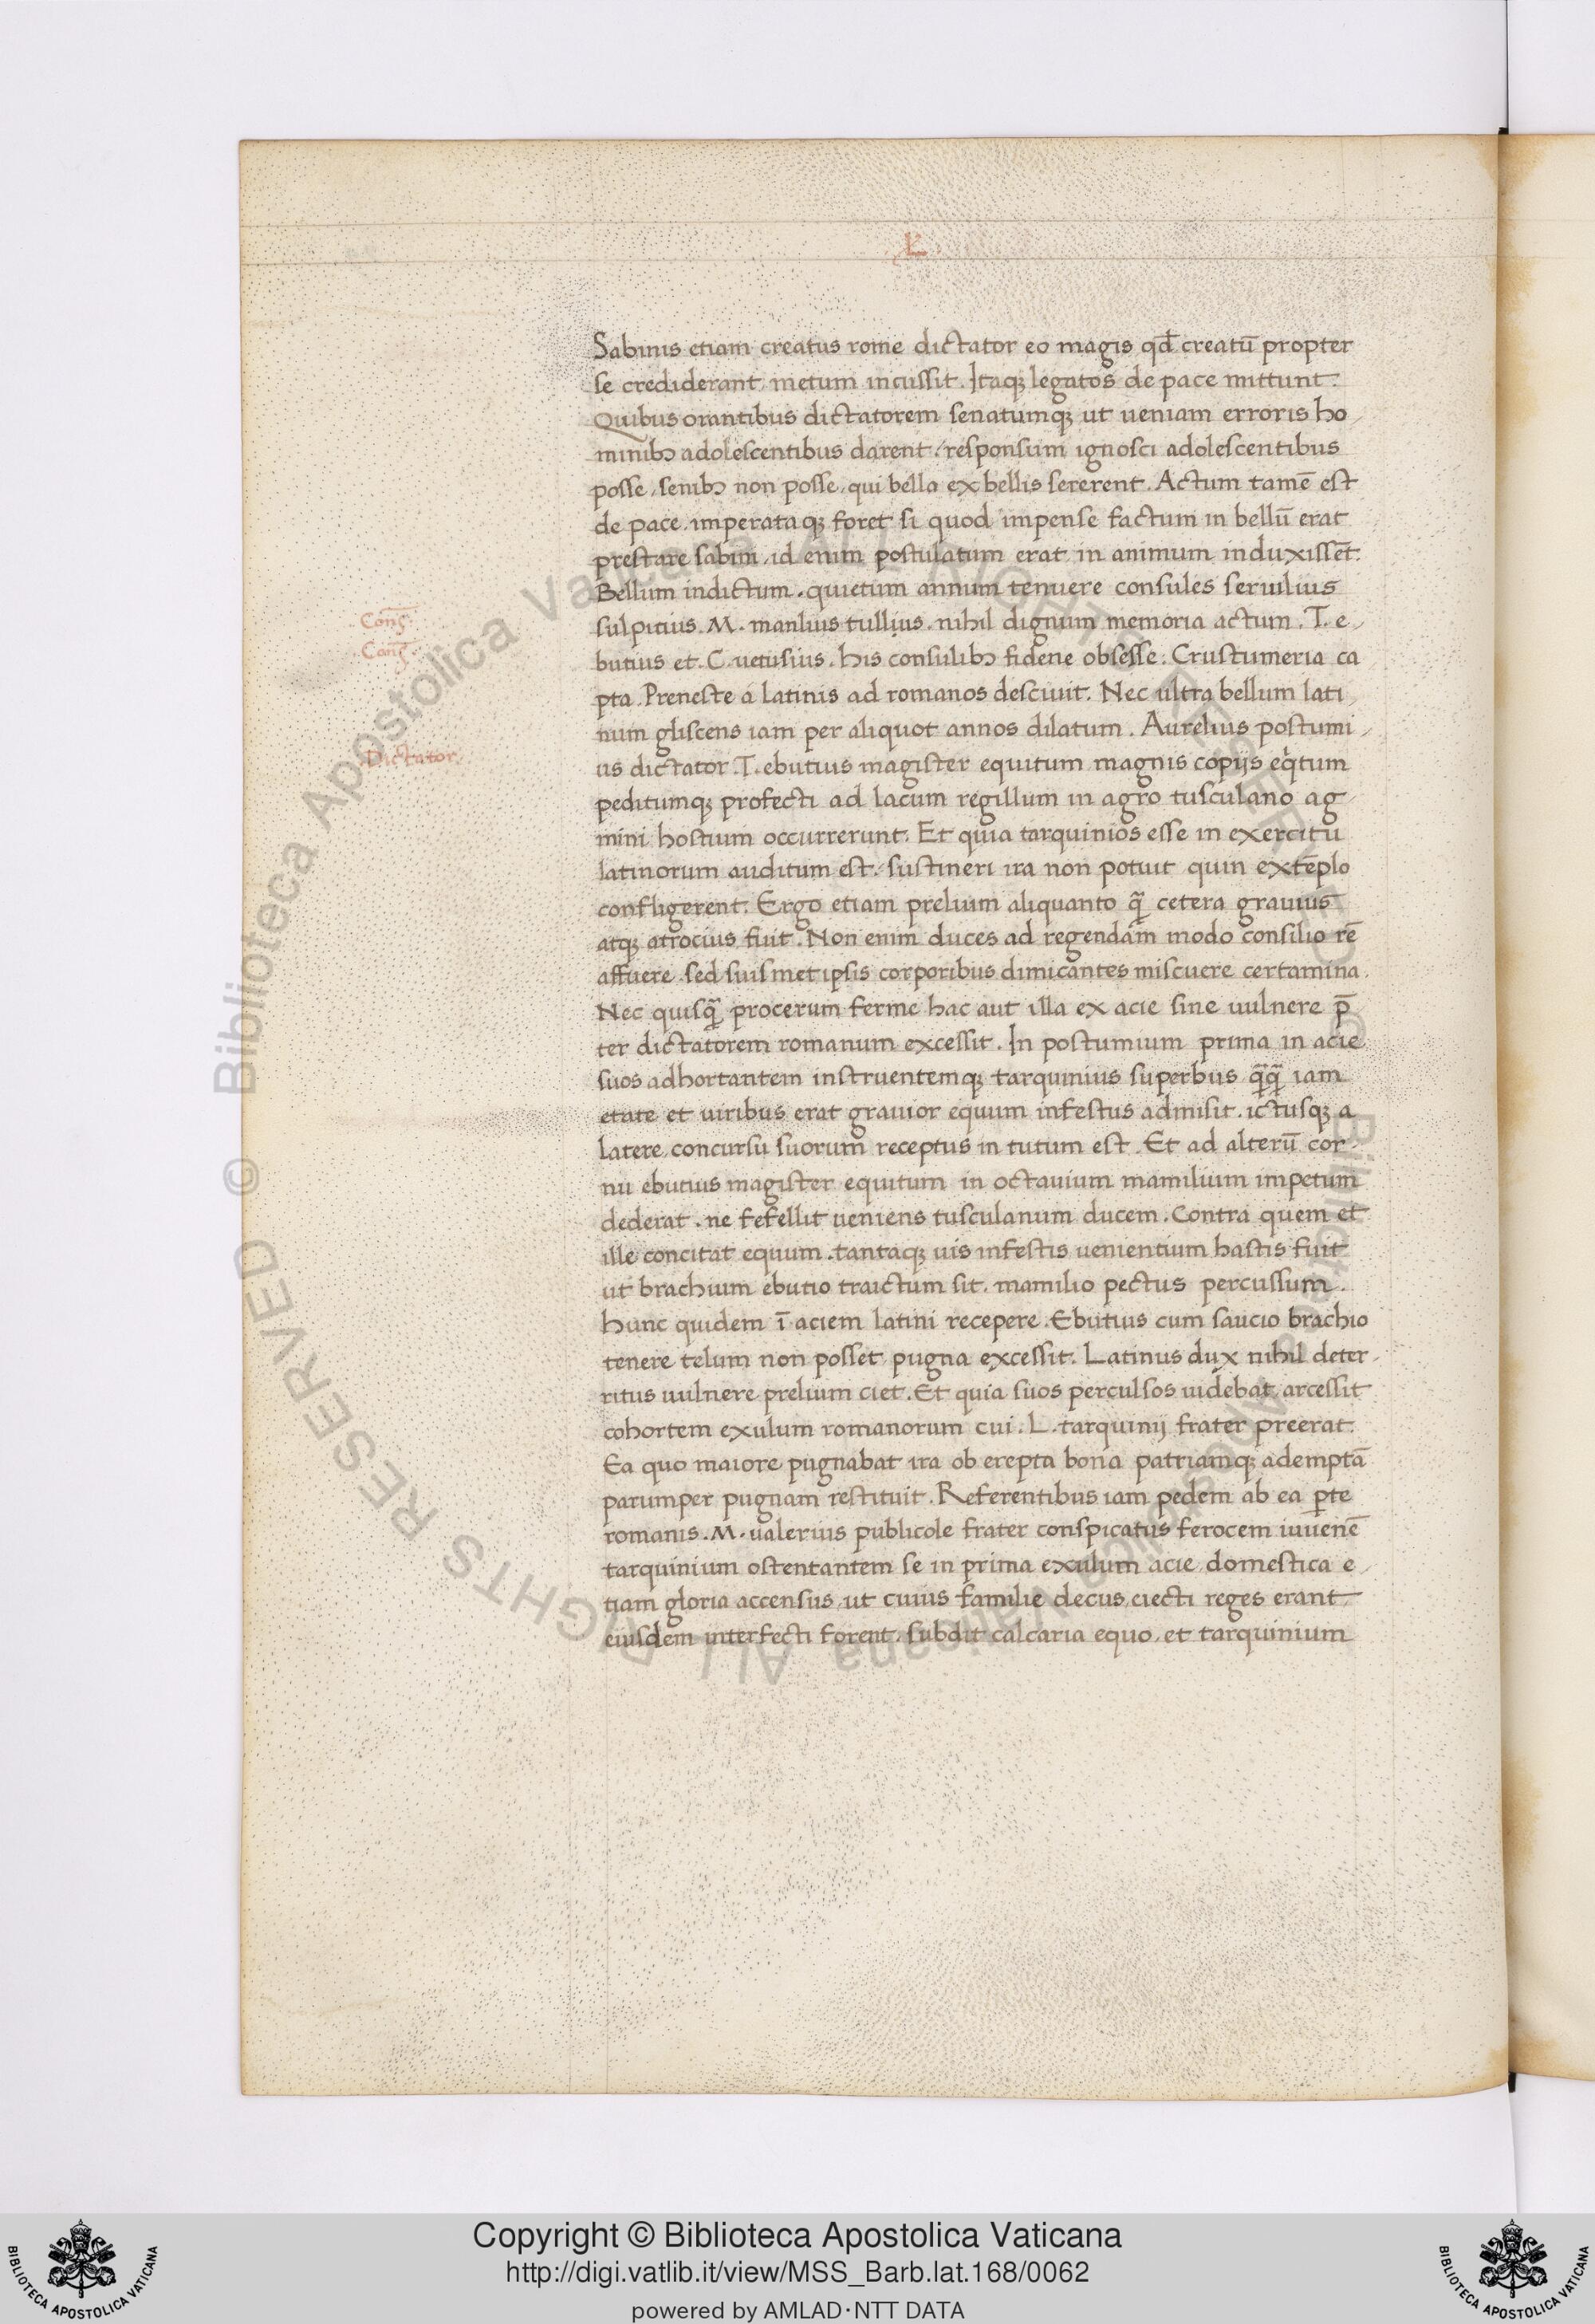 .L.
Sabinis etiam creatus rome dictator eo magis qd̄ creatū propter
se crediderant metum incussit. Itaqꝫ legatos de pace mittunt.
Quibus orantibus dictatorem senatumqꝫ ut ueniam erroris ho
minibꝫ adolescentibus darent. responsum ignosci adolescentibus
posse, senibꝫ non posse, qui bella ex bellis sererent. Actum tamē est
de pace, imperataqꝫ foret si quod impense factum in bellū erat
prestare sabini, id enim postulatum erat in animum induxissēt.
Bellum indictum. quietum annum tenuere consules seruilius
Conſ.
sulpitius. M. manlius tullius. nihil dignum memoria actum. T. e
Conſ.
butius et. C. uetusius. his consulibꝫ fidene obsesse. Crustumeria ca
pta. Preneste a latinis ad romanos desciuit. Nec ultra bellum lati
num gliscens iam per aliquot annos dilatum. Aurelius postumi
Dictator.
us dictator. T. ebutius magister equitum magnis copijs eqͥtum
peditumqꝫ profecti ad lacum regillum in agro tusculano ag
mini hostium occurrerunt. Et quia tarquinios esse in exercitu
latinorum auditum est, sustineri ira non potuit quin extēplo
confligerent. Ergo etiam prelium aliquanto q̄ cetera grauius
atqꝫ atrocius fuit. Non enim duces ad regendam modo consilio rē
affuere sed suismet ipsis corporibus dimicantes miscuere certamina.
Nec quisq̄ procerum ferme hac aut illa ex acie sine uulnere p̄
ter dictatorem romanum excessit. In postumium prima in acie
suos adhortantem instruentemqꝫ tarquinius superbus q̄q̄ iam
etate et uiribus erat grauior equum infestus admisit. ictusqꝫ a
latere concursu suorum receptus in tutum est. Et ad alterū cor
nu ebutius magister equitum in octauium mamilium impetum
dederat. ne fefellit ueniens tusculanum ducem. Contra quem et
ille concitat equum. tantaqꝫ uis infestis uenientium hastis fuit
ut brachium ebutio traictum sit. mamilio pectus percussum.
hunc quidem ī aciem latini recepere. Ebutius cum saucio brachio
tenere telum non posset pugna excessit. Latinus dux nihil deter
ritus uulnere prelium ciet. Et quia suos perculsos uidebat, arcessit
cohortem exulum romanorum cui. L. tarquinij frater preerat.
Ea quo maiore pugnabat ira ob erepta bona patriamqꝫ ademptā
parumper pugnam restituit. Referentibus iam pedem ab ea ꝑte
romanis. M. ualerius publicole frater conspicatus ferocem iuuenē
tarquinium ostentantem se in prima exulum acie, domestica e
tiam gloria accensus, ut cuius familie decus eiecti reges erant,
eiusdem interfecti forent, subdit calcaria equo, et tarquinium
© Biblioteca Apostolica Vaticana ALL RIGHTS RESERVED © Biblioteca Apostolica Vaticana ALL RIGHTS RESERVED
Copyright © Biblioteca Apostolica Vaticana
http://digi.vatlib.it/view/MSS_Barb.lat.168/0062
powered by AMLAD·NTT DATA
BIBLIOTECA APOSTOLICA VATICANA
BIBLIOTECA APOSTOLICA VATICANA